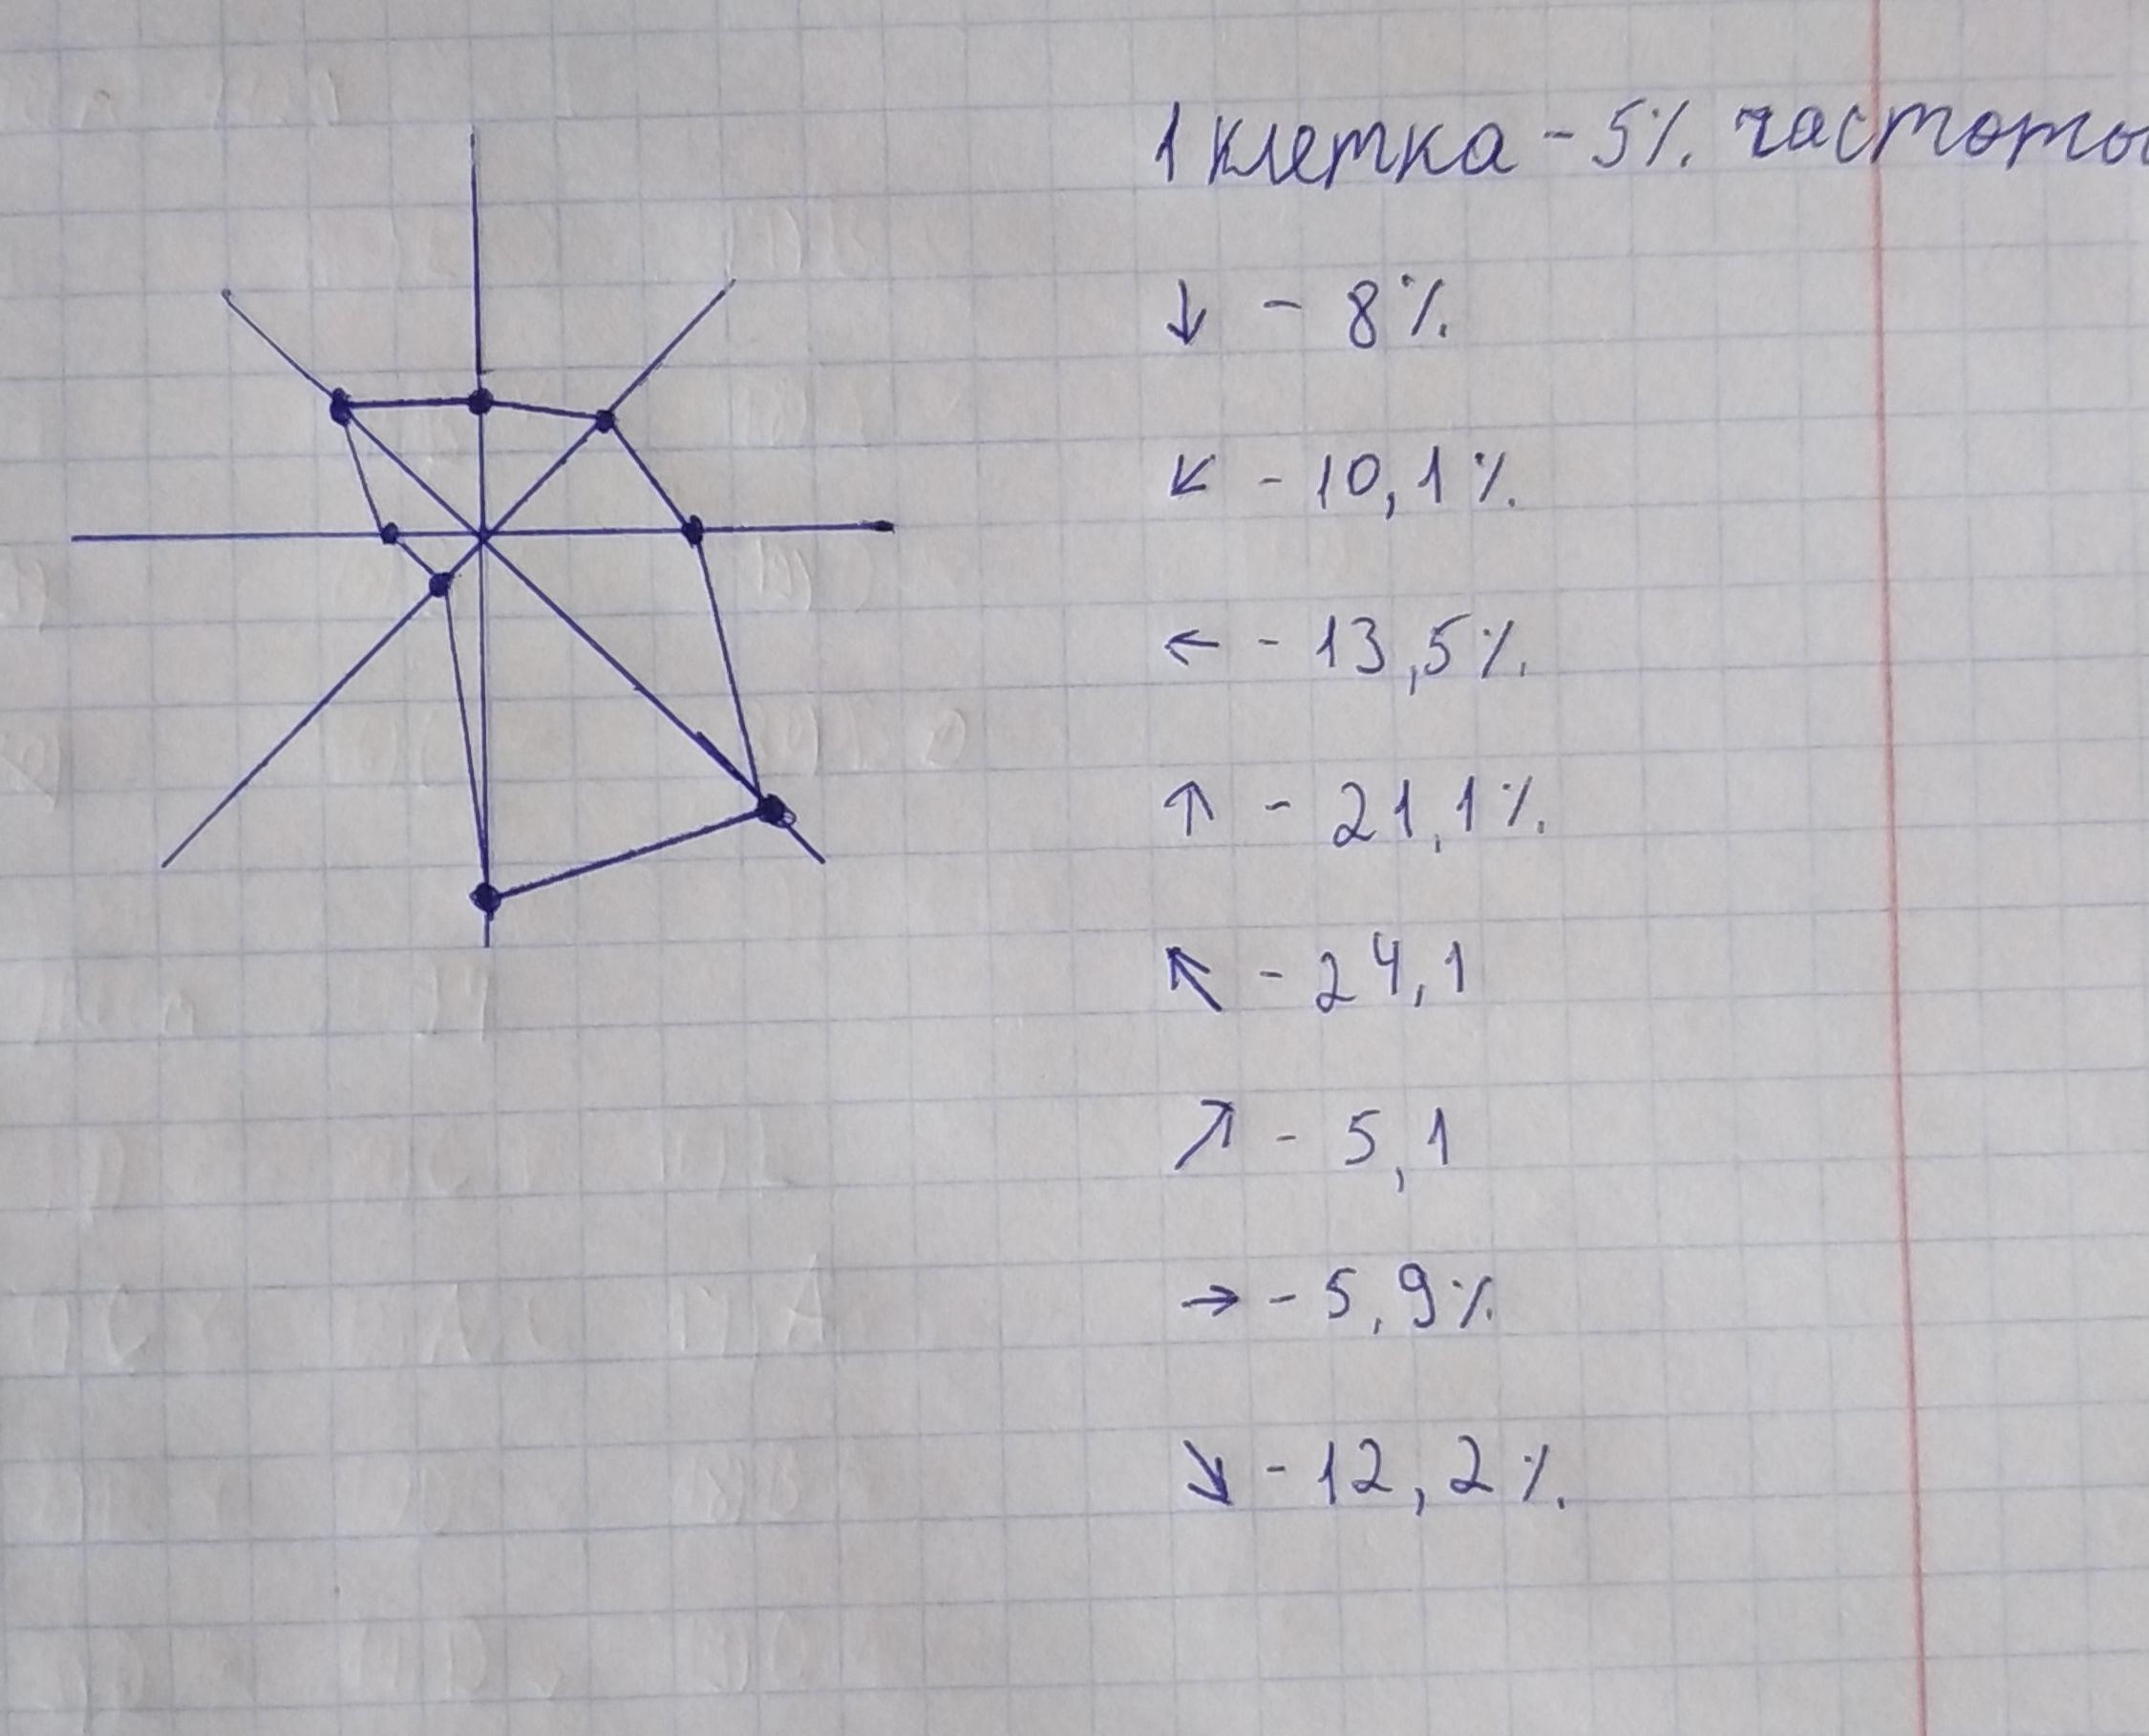 1 клетка - 5% частоты
↓ - 8%
↙ - 10,1%
← - 13,5%
↑ - 21,1%
↖ - 24,1
↗ - 5,1
→ - 5,9%
↘ - 12,2%